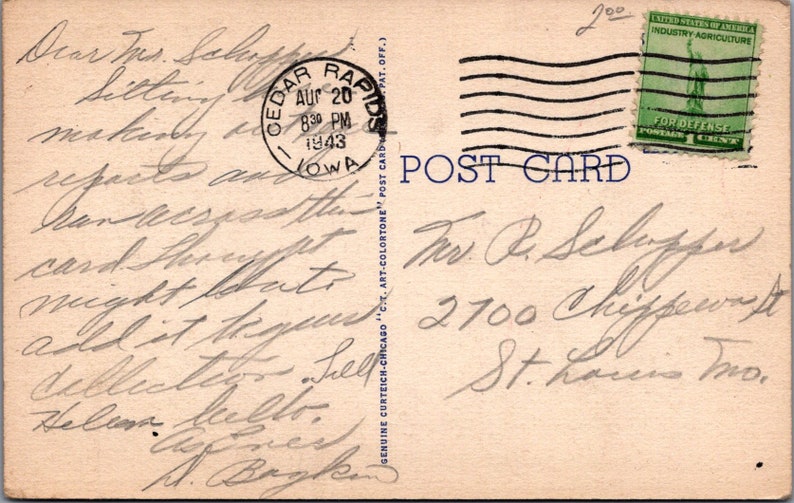 2.00
Dear Mr. Schopper
Sitting
making out
reports and
ran across this
card thought
might like to
add it to your
collection. Tell
Helen hello.
As Ever
D. Boykin
CEDAR RAPIDS
AUG 20
8 30 PM
1943
IOWA
GENUINE CURTEICH-CHICAGO "C.T. ART-COLORTONE" POST CARD (REG. U.S. PAT. OFF.)
UNITED STATES OF AMERICA
INDUSTRY-AGRICULTURE
FOR DEFENSE
POSTAGE 1 CENT
POST CARD
Mr R. Schopper
2700 Chippewa St
St. Louis Mo.